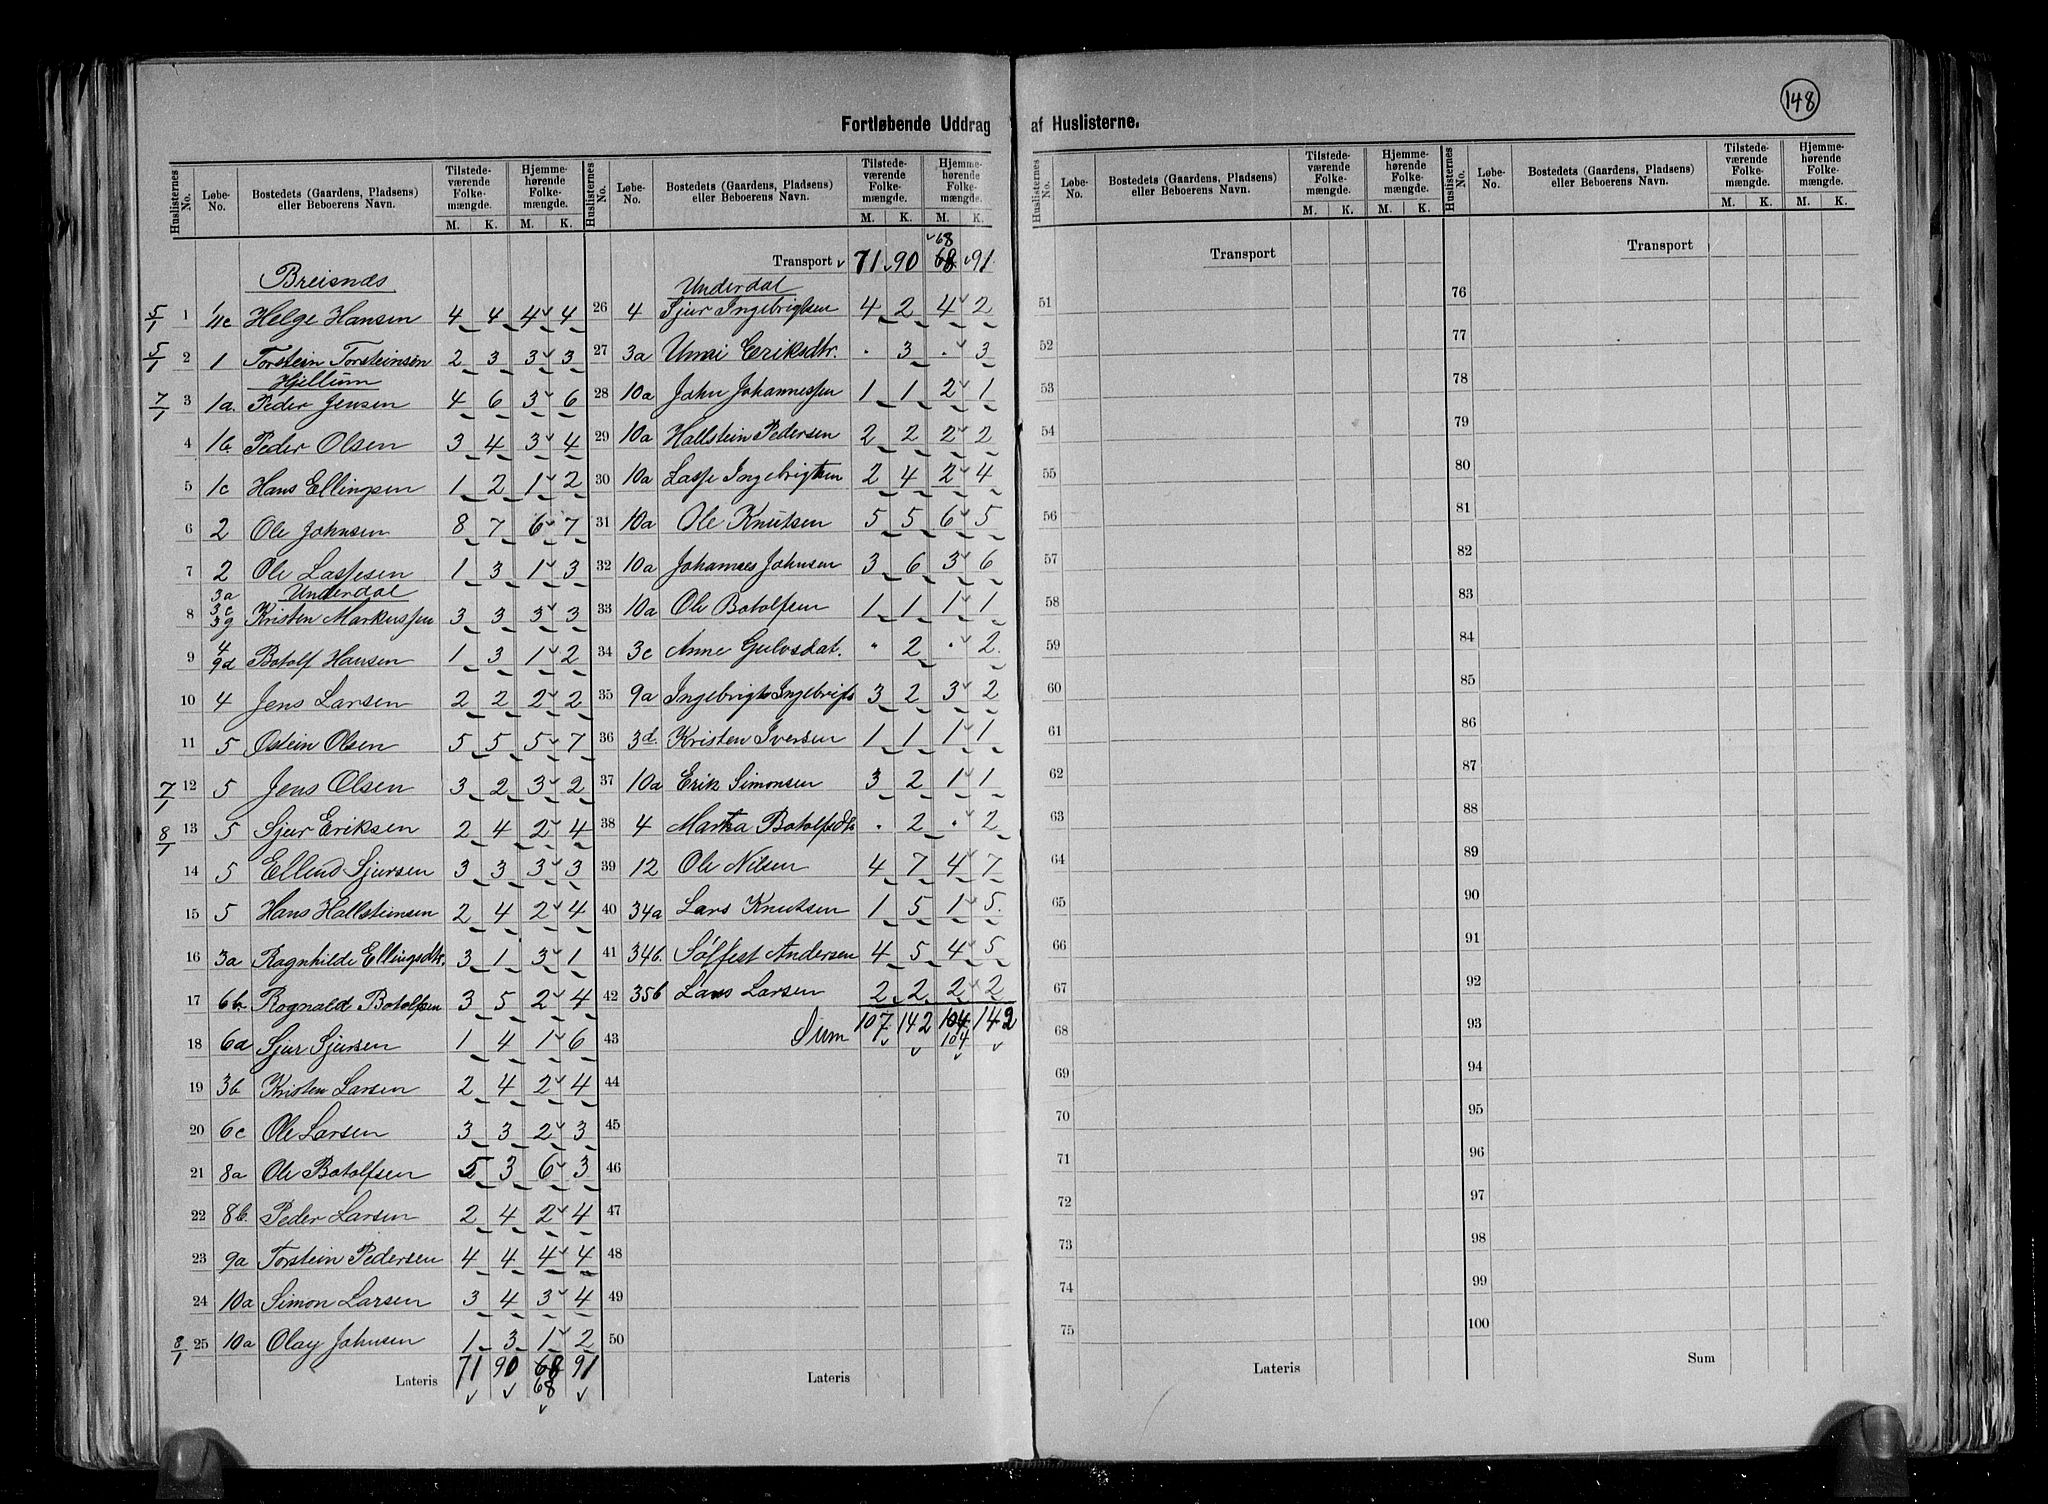 148
Fortløbende Uddrag af Huslisterne.
Huslisternes No. Løbe-No. Bostedets (Gaardens, Pladsens) eller Beboerens Navn. Tilstedeværende Folkemængde. M. K. Hjemmehørende Folkemængde. M. K.
Breisnæs
5/1 1 11c Helge Hansen 4 4 4 4
5/1 2 1 Torstein Torsteinsen 2 3 3 3
Hjellum
7/1 3 1a. Peder Jensen 4 6 3 6
4 1b. Peder Olsen 3 4 3 4
5 1c Hans Ellingsen 1 2 1 2
6 2 Ole Johnsen 8 7 6 7
7 2 Ole Lassesen 1 3 1 3
Underdal
8 3a 3c 3g Kristen Markussen 3 3 3 3
9 4 9d Botolf Hansen 1 3 1 2
10 4 Jens Larsen 2 2 2 2
11 5 Østein Olsen 5 5 5 7
7/1 12 5 Jens Olsen 3 2 3 2
8/1 13 5 Sjur Eriksen 2 4 2 4
14 5 Ellend Sjursen 3 3 3 3
15 5 Hans Hallsteinsen 2 4 2 4
16 3a Ragnhilde Ellingsdtr. 3 1 3 1
17 6b. Rognald Botolfsen 3 5 2 4
18 6a Sjur Sjursen 1 4 1 6
19 3b Kristen Larsen 2 4 2 4
20 6c Ole Larsen 3 3 2 3
21 8a Ole Botolfsen 5 3 6 3
22 8b. Peder Larsen 2 4 2 4
23 9a Torstein Pedersen 4 4 4 4
24 10a Simon Larsen 3 4 3 4
8/1 25 10a Olav Johnsen 1 3 1 2
Lateris 71 90 68 91
68
Huslisternes No. Løbe-No. Bostedets (Gaardens, Pladsens) eller Beboerens Navn. Tilstedeværende Folkemængde. M. K. Hjemmehørende Folkemængde. M. K.
68
Transport 71 90 68 91.
Underdal
26 4 Sjur Ingebrigtsen 4 2 4 2
27 3a Unni Eriksdtr. " 3 " 3
28 10a John Johannessen 1 1 2 1
29 10a Hallstein Pedersen 2 2 2 2
30 10a Lasse Ingebrigtsen 2 4 2 4
31 10a Ole Knutsen 5 5 6 5
32 10a Johannes Johnsen 3 6 3 6
33 10a Ole Botolfsen 1 1 1 1
34 3c Anne Gulvsdat. " 2 " 2.
35 9a Ingebrigt Ingebrigts 3 2 3 2
36 3d. Kristen Iversen 1 1 1 1
37 10a Erik Simonsen 3 2 1 1
38 4 Martha Botolfsdtr " 2 " 2
39 12 Ole Nilsen 4 7 4 7
40 34a Lars Knutsen 1 5 1 5.
41 34b. Sølfest Andersen 4 5 4 5
42 35b Lars Larsen 2 2 2 2
43 Sum 107 142 104 142
104
44
45
46
47
48
49
50
Lateris
Huslisternes No. Løbe-No. Bostedets (Gaardens, Pladsens) eller Beboerens Navn. Tilstedeværende Folkemængde. M. K. Hjemmehørende Folkemængde. M. K.
Transport
51
52
53
54
55
56
57
58
59
60
61
62
63
64
65
66
67
68
69
70
71
72
73
74
75
Lateris
Huslisternes No. Løbe-No. Bostedets (Gaardens, Pladsens) eller Beboerens Navn. Tilstedeværende Folkemængde. M. K. Hjemmehørende Folkemængde. M. K.
Transport
76
77
78
79
80
81
82
83
84
85
86
87
88
89
90
91
92
93
94
95
96
97
98
99
100
Sum